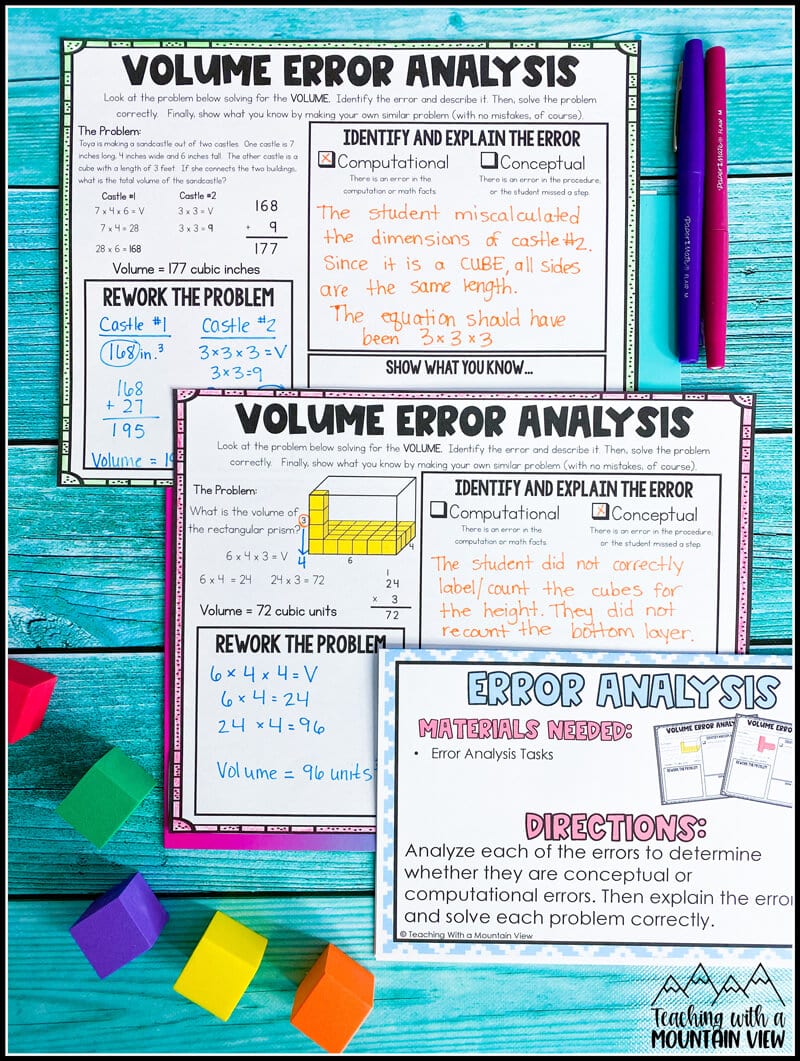 VOLUME ERROR ANALYSIS
Look at the problem below solving for the VOLUME. Identify the error and describe it. Then, solve the problem
correctly. Finally, show what you know by making your own similar problem (with no mistakes, of course).
The Problem:
Toya is making a sandcastle out of two castles. One castle is 7
inches long, 4 inches wide and 6 inches tall. The other castle is a
cube with a length of 3 feet. If she connects the two buildings,
what is the total volume of the sandcastle?
Castle #1
7 x 4 x 6 = V
7 x 4 = 28
28 x 6 = 168
Castle #2
3 x 3 = V
3 x 3 = 9
168
+ 9
177
Volume = 177 cubic inches
IDENTIFY AND EXPLAIN THE ERROR
x Computational
There is an error in the
computation or math facts
Conceptual
There is an error in the procedure,
or the student missed a step.
The student miscalculated
the dimensions of castle #2.
Since it is a CUBE, all sides
are the same length.
The equation should have
been 3 x 3 x 3
REWORK THE PROBLEM
Castle #1
168 in.³
168
+ 27
195
Castle #2
3 x 3 x 3 = V
3 x 3 = 9
Volume = 1
SHOW WHAT YOU KNOW...
PAPER MATE FLAIR M
PAPER MATE FLAIR M
VOLUME ERROR ANALYSIS
Look at the problem below solving for the VOLUME. Identify the error and describe it. Then, solve the problem
correctly. Finally, show what you know by making your own similar problem (with no mistakes, of course).
The Problem:
What is the volume of
the rectangular prism?
3
4
6
4
6 x 4 x 3 = V
6 x 4 = 24 24 x 3 = 72
1
24
x 3
72
Volume = 72 cubic units
IDENTIFY AND EXPLAIN THE ERROR
Computational
There is an error in the
computation or math facts
x Conceptual
There is an error in the procedure,
or the student missed a step.
The student did not correctly
label/count the cubes for
the height. They did not
recount the bottom layer.
REWORK THE PROBLEM
6 x 4 x 4 = V
6 x 4 = 24
24 x 4 = 96
Volume = 96 units
ERROR ANALYSIS
MATERIALS NEEDED:
• Error Analysis Tasks
VOLUME ERROR ANALY
VOLUME ERRO
REWORK THE PROBLEM
DIRECTIONS:
Analyze each of the errors to determine
whether they are conceptual or
computational errors. Then explain the erro
and solve each problem correctly.
© Teaching With a Mountain View
Teaching with a
MOUNTAIN VIEW